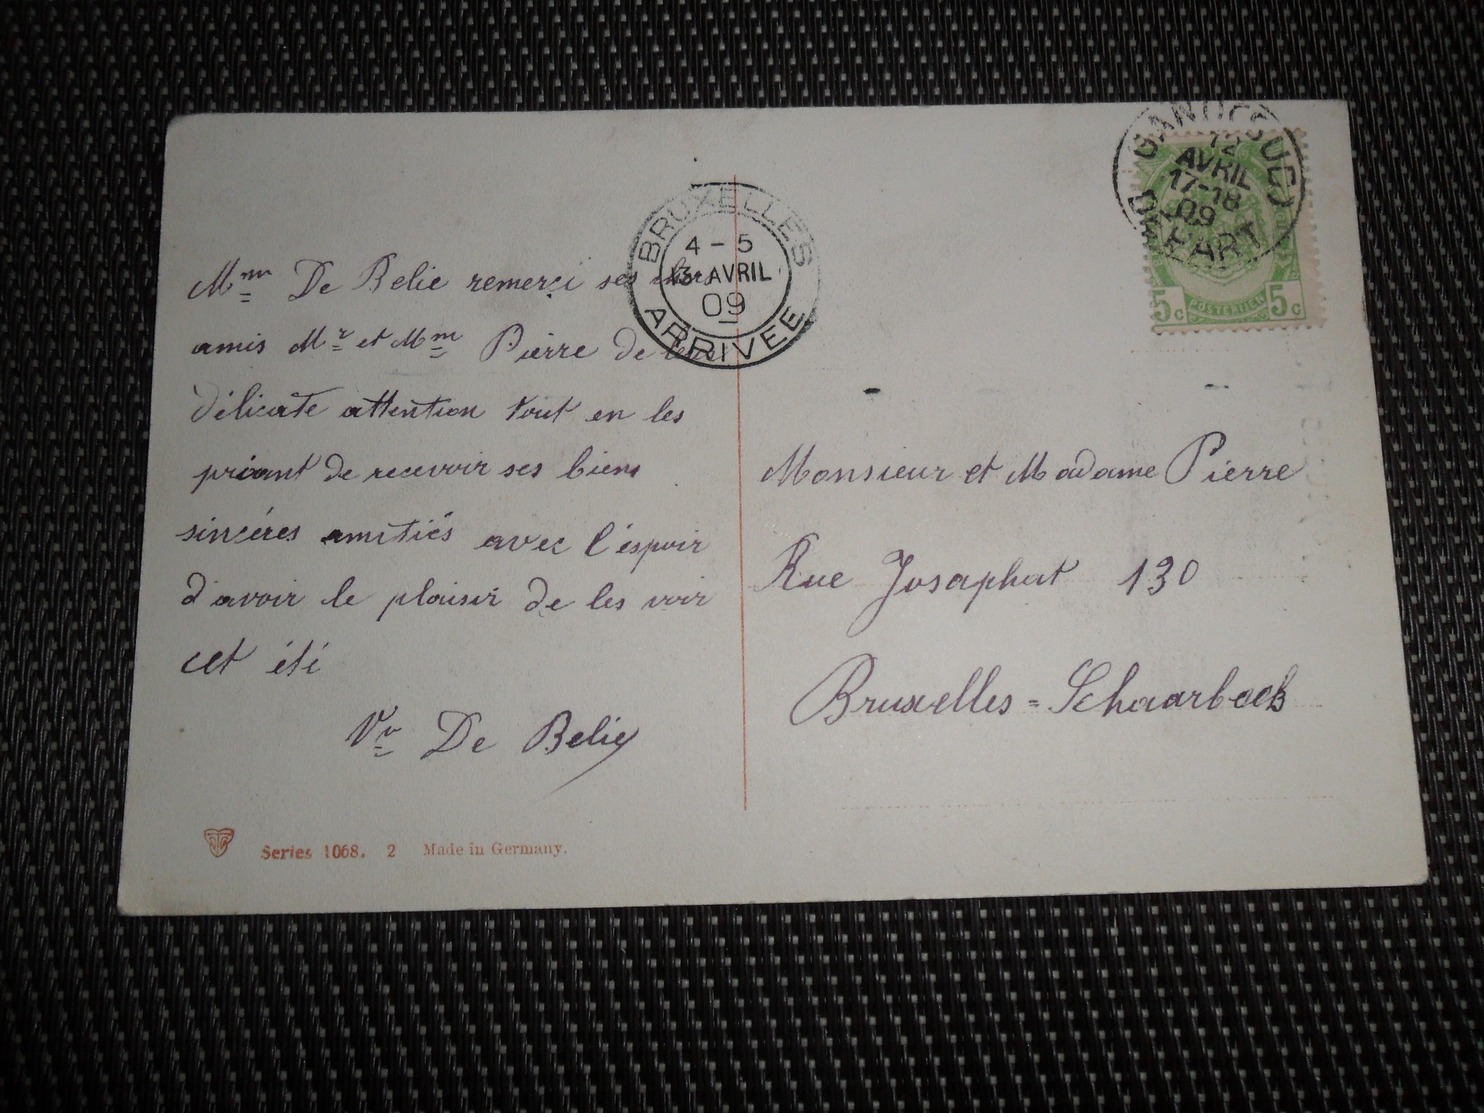 Mme De Belie remerci ses chers
amis Mr et Mme Pierre de leur
délicate attention tout en les
priant de recevoir ses biens
sincéres amitiés avec l'éspoir
d'avoir le plaisir de les voir
cet été
Vve De Belie
Series 1068. 2 Made in Germany.
BRUXELLES
4 - 5
13 AVRIL
09
ARRIVEE
12
AVRIL
17-18
09
DEPART
5c POSTERIJEN 5c
Monsieur et Madame Pierre
Rue Josaphat 130
Bruxelles = Schaarbeek